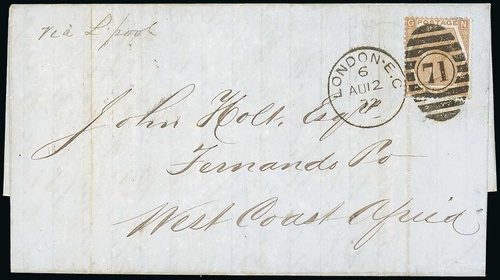 via L'pool
G POSTAGE N
LONDON·E.C
6
AU 12
71
John Holt. Esqre
Fernando Po
West Coast Africa